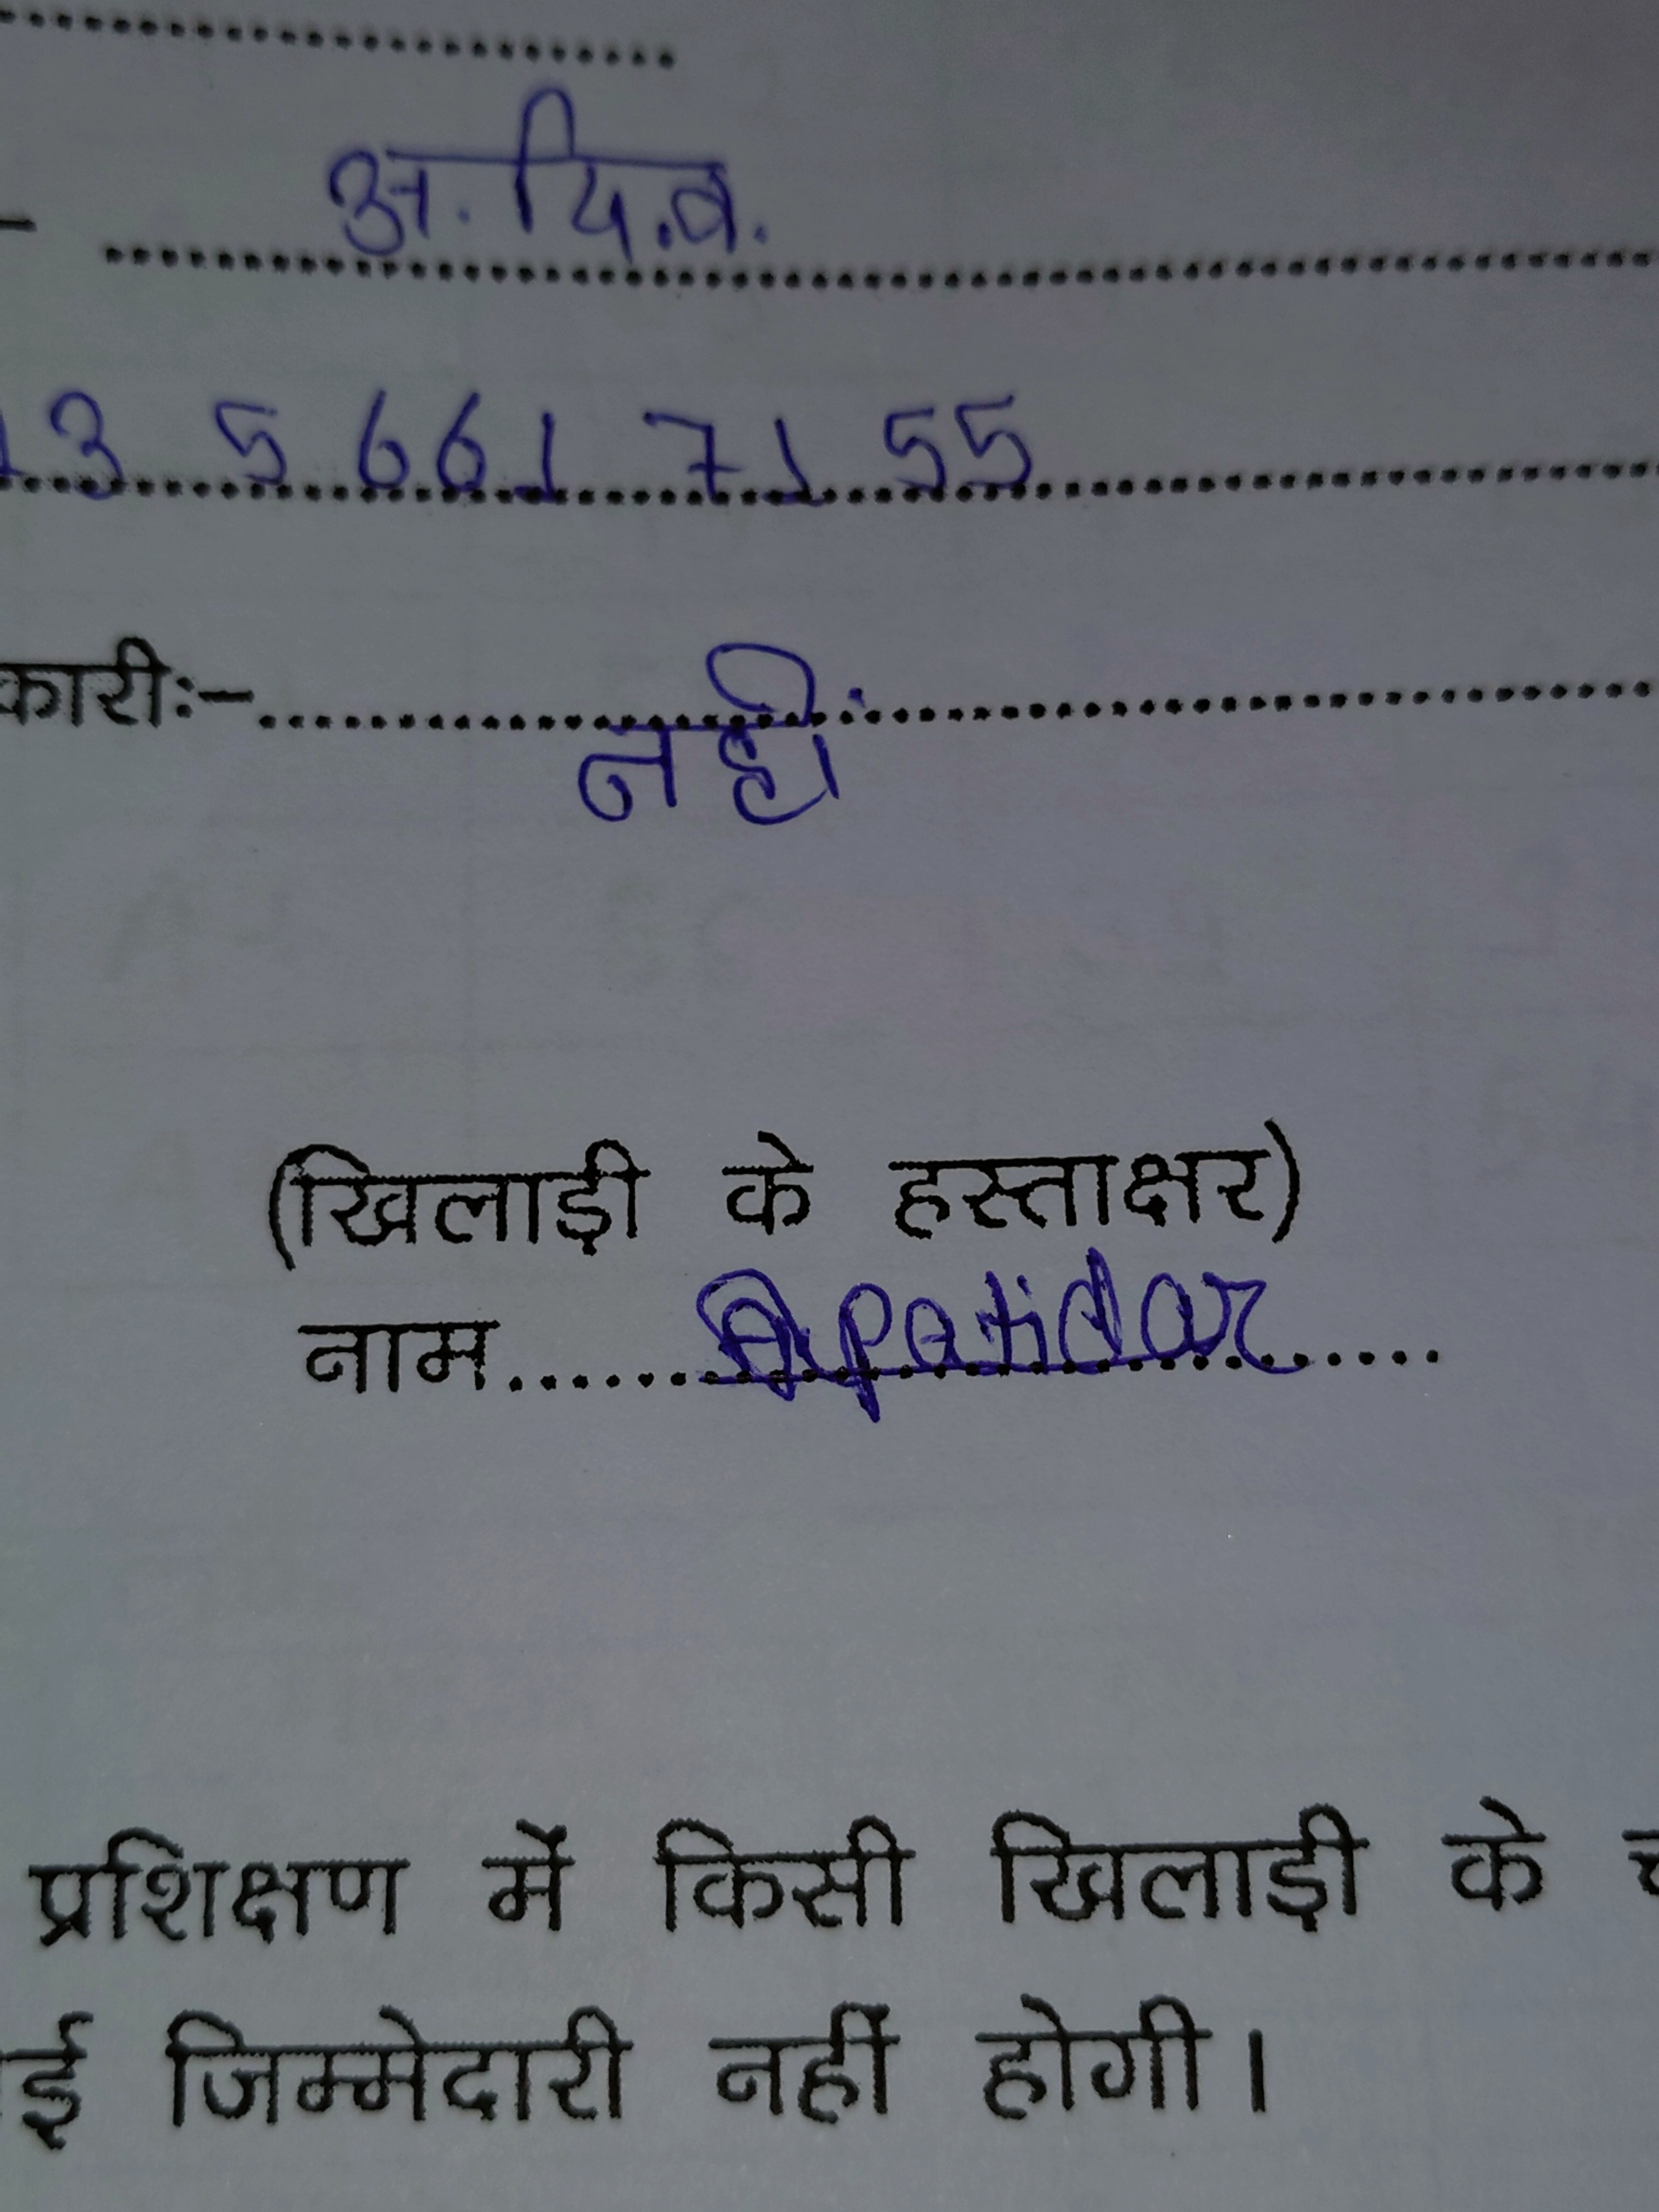 अ.पि.व.
3 5 661 71 55
कारीः- नहीं
(खिलाड़ी के हस्ताक्षर)
नाम...... Apatidar
प्रशिक्षण में किसी खिलाड़ी के
ई जिम्मेदारी नहीं होगी।